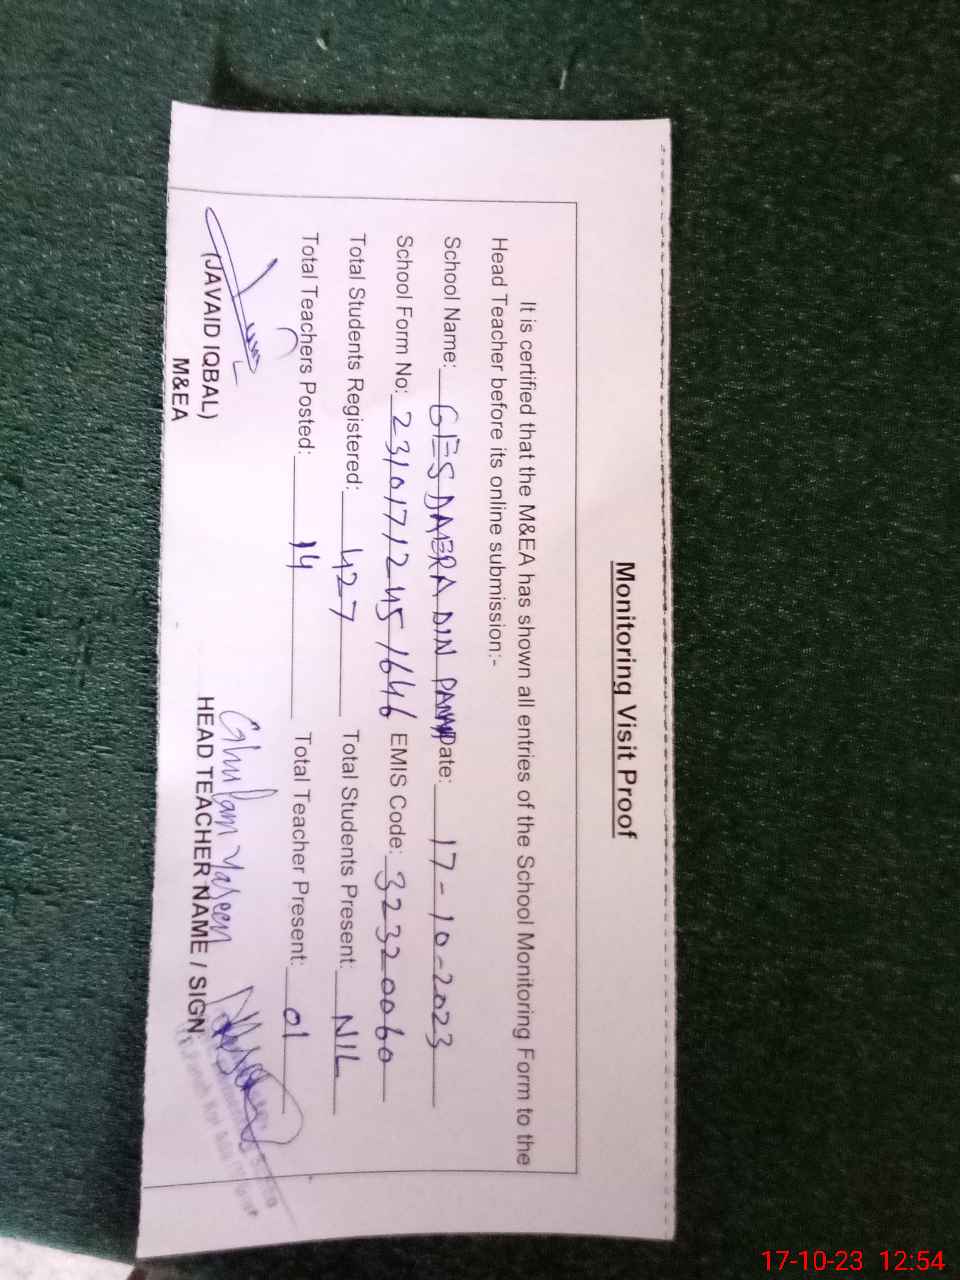 Monitoring Visit Proof
It is certified that the M&EA has shown all entries of the School Monitoring Form to the
Head Teacher before its online submission:-
School Name: GES DAERA DIN PANAH Date: 17-10-2023
School Form No: 23101712451646 EMIS Code: 32320060
Total Students Registered: 427 Total Students Present: NIL
Total Teachers Posted: 14 Total Teacher Present: 01
Ghulam Yaseen
(JAVAID IQBAL) HEAD TEACHER NAME / SIGN:
M&EA
17-10-23 12:54